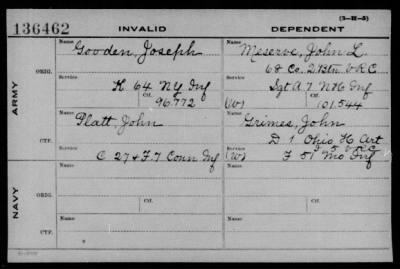 (3-II-5)
136462 INVALID DEPENDENT
ARMY
ORIG.
Name Gooden, Joseph
Service K 64 NY Inf
Ctf. 96.772
Name Meserve, John L
68 Co. 2 Btn V.R.C.
Service Sgt A 7 N H Inf
(W) Ctf. 101.544
CTF.
Name Platt, John
Service C 27 & F. 7 Conn Inf
Name Grimes, John
D 1 Ohio H Art
Service
(W) F 51 Mo Inf
NAVY
ORIG.
Name
Ctf.
Name
Ctf.
CTF.
Name
Name